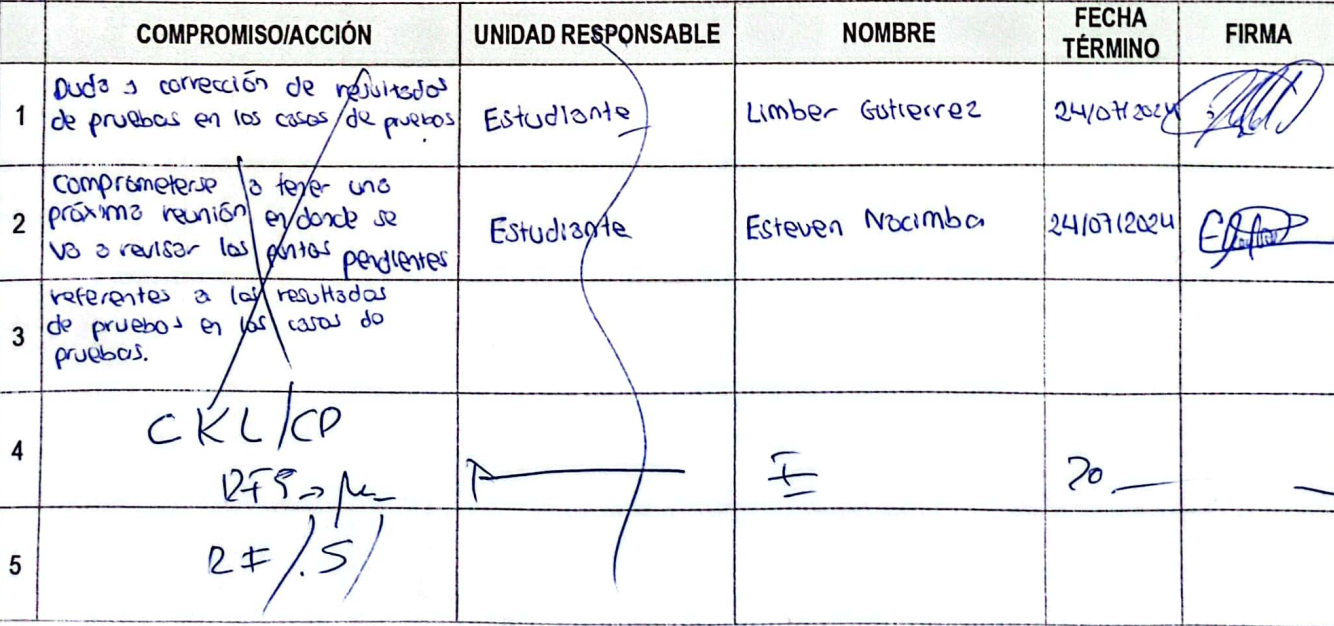 COMPROMISO/ACCIÓN UNIDAD RESPONSABLE NOMBRE FECHA TÉRMINO FIRMA
1 Duda s corrección de resultados
de pruebas en los casos de pruebas Estudiante Limber Gutierrez 24/07/2024
2 Comprometerse a tener una
próxima reunión en donde se
va a revisar los puntos pendientes Estudiante Esteven Nacimba 24/07/2024
3 referentes a los resultados
de pruebas en los casos de
pruebas.
4 CKL/CP
5